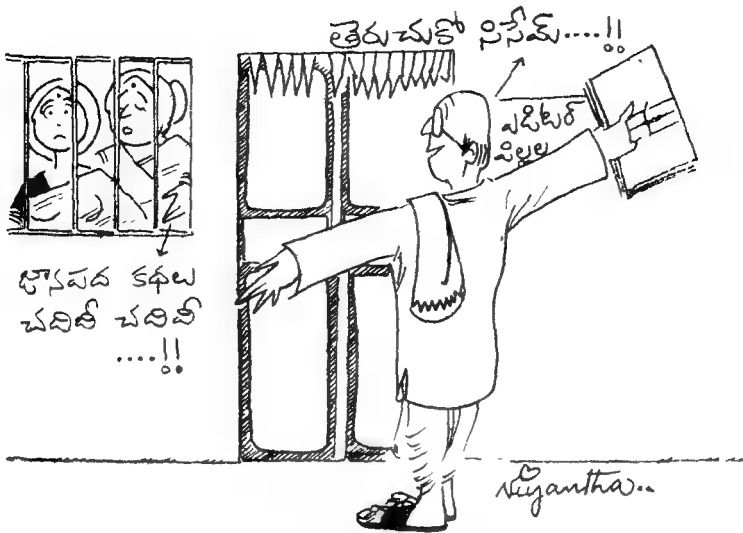 తెరుచుకో సిసేమ్....!!
ఎడిటర్
పిల్లల
జానపద కథలు
చదివీ చదివీ
....!!
Niyantha..